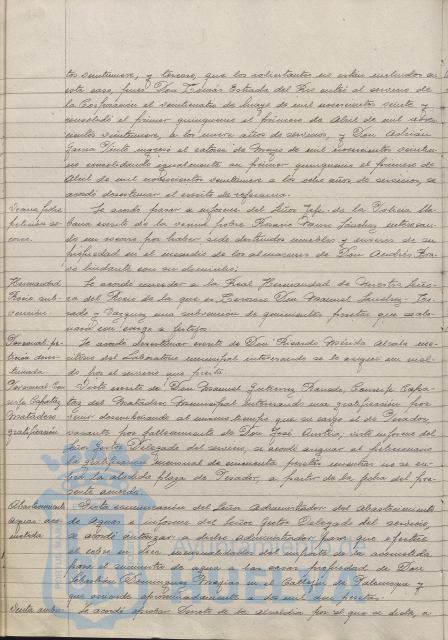 tos veintinueve, y tercero, que los solicitantes no están incluidos en
este caso, pues Don Tomás Estrada del Río entró al servicio de
la Corporación el veinticuatro de Mayo de mil novecientos veinte y
consolidó el primer quinquenio el primero de Abril de mil nove-
cientos veintinueve, a los nueve años de servicios, y Don Adrián
García Pinto ingresó el catorce de Mayo de mil novecientos veintiuno
consolidando igualmente su primer quinquenio el primero de
Abril de mil novecientos veintinueve a los ocho años de servicios, se
acordó desestimar el escrito de referencia.
Vecina pobre
petición so-
corro.
Se acordó pasar a informe del Señor Jefe de la Policía Ur-
bana escrito de la vecina pobre Rosario Sánchez interesan-
do un socorro por haber sido destruidos muebles y enseres de su
propiedad en el incendio de los almacenes de Don Andrés Bra-
vo lindante con su domicilio.
Hermandad
Rocío sub-
vención.
Se acordó conceder a la Real Hermandad de Nuestra Seño-
ra del Rocío de la que es Hermano Don Manuel Sánchez
y Vázquez una subvención de quinientas pesetas que se abo-
nará con cargo a festejos.
Personal. pe-
tición deses-
timada.
Se acordó desestimar escrito de Don Ricardo Mérida Alcalá mo-
zo del Laboratorio municipal interesando se le asigne un suel-
do por el servicio que presta.
Personal Con-
serje Capataz
Matadero
gratificación
Visto escrito de Don Manuel Gutiérrez Conserje Capa-
taz del Matadero Municipal interesando una gratificación por
venir desempeñando al mismo tiempo que su cargo el de Pesador,
vacante por fallecimiento de Don José visto informe del
Señor Gestor Delegado del servicio, se acordó asignar al peticionario
la gratificación mensual de cincuenta pesetas mientras no se cu-
bra la aludida plaza de Pesador, a partir de la fecha del pre-
sente acuerdo.
Abastecimiento
aguas aco-
metida
Vista comunicación del Señor Administrador del Abastecimiento
de Aguas e informe del Señor Gestor Delegado del servicio,
se acordó autorizar a dicho administrador para que efectúe
el cobro en diez mensualidades del importe de la acometida
para el suministro de agua a las casas propiedad de Don
Sebastián Domínguez en el Callejón de y
que asciende aproximadamente a las mil pesetas.
Venta
Se acordó aprobar Decreto de la Alcaldía por el que se dicta, a